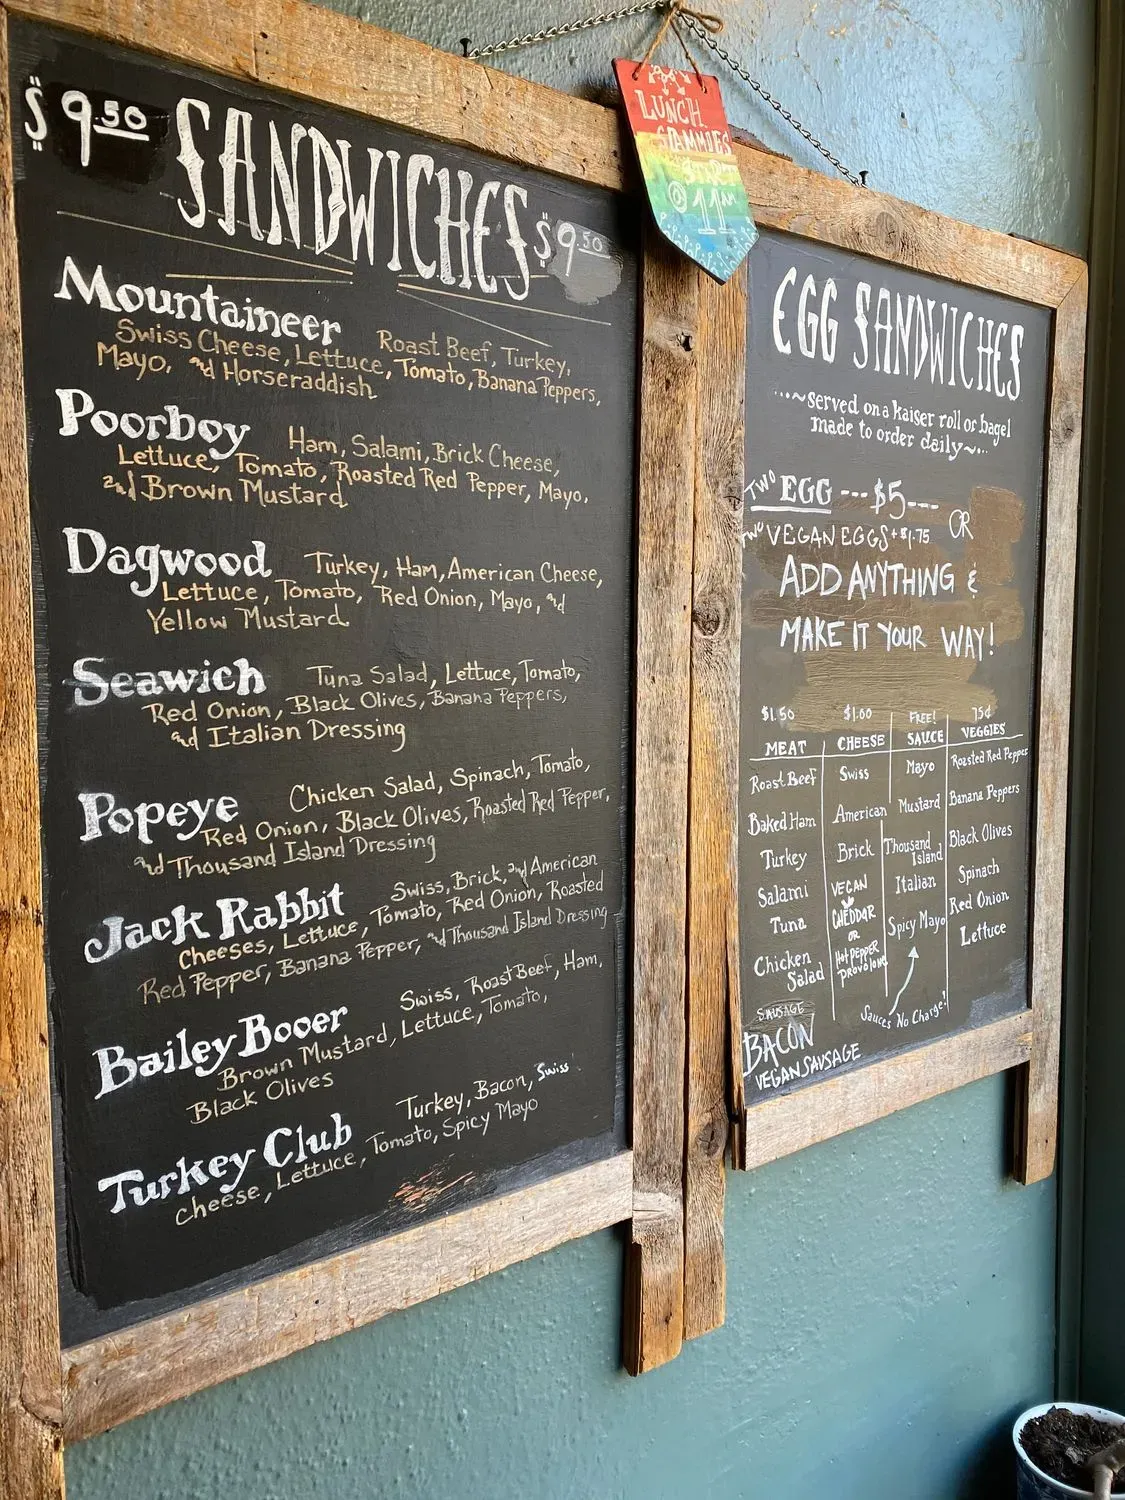 $9.50 SANDWICHES $9.50
Mountaineer Roast Beef, Turkey,
Swiss Cheese, Lettuce, Tomato, Banana Peppers,
Mayo, and Horseraddish
Poorboy Ham, Salami, Brick Cheese,
Lettuce, Tomato, Roasted Red Pepper, Mayo,
and Brown Mustard
Dagwood Turkey, Ham, American Cheese,
Lettuce, Tomato, Red Onion, Mayo, and
Yellow Mustard
Seawich Tuna Salad, Lettuce, Tomato,
Red Onion, Black Olives, Banana Peppers,
and Italian Dressing
Popeye Chicken Salad, Spinach, Tomato,
Red Onion, Black Olives, Roasted Red Pepper,
and Thousand Island Dressing
Jack Rabbit Swiss, Brick, and American
Cheeses, Lettuce, Tomato, Red Onion, Roasted
Red Pepper, Banana Pepper, and Thousand Island Dressing
Bailey Booer Swiss, Roast Beef, Ham,
Brown Mustard, Lettuce, Tomato,
Black Olives
Turkey Club Turkey, Bacon, Swiss
Cheese, Lettuce, Tomato, Spicy Mayo
LUNCH
SAMMIES
START
@ 11am
EGG SANDWICHES
...~served on a kaiser roll or bagel
made to order daily~...
TWO EGG --- $5---
TWO VEGAN EGGS +$1.75 OR
ADD ANYTHING &
MAKE IT YOUR WAY!
$1.50 $1.00 FREE! 75¢
MEAT CHEESE SAUCE VEGGIES
Roast Beef Swiss Mayo Roasted Red Pepper
Baked Ham American Mustard Banana Peppers
Turkey Brick Thousand Island Black Olives
Salami VEGAN Italian Spinach
Tuna CHEDDAR Spicy Mayo Red Onion
OR Lettuce
Chicken Salad Hot PEPPER PROVOLONE
Sauces No Charge!
SAUSAGE
BACON
VEGAN SAUSAGE